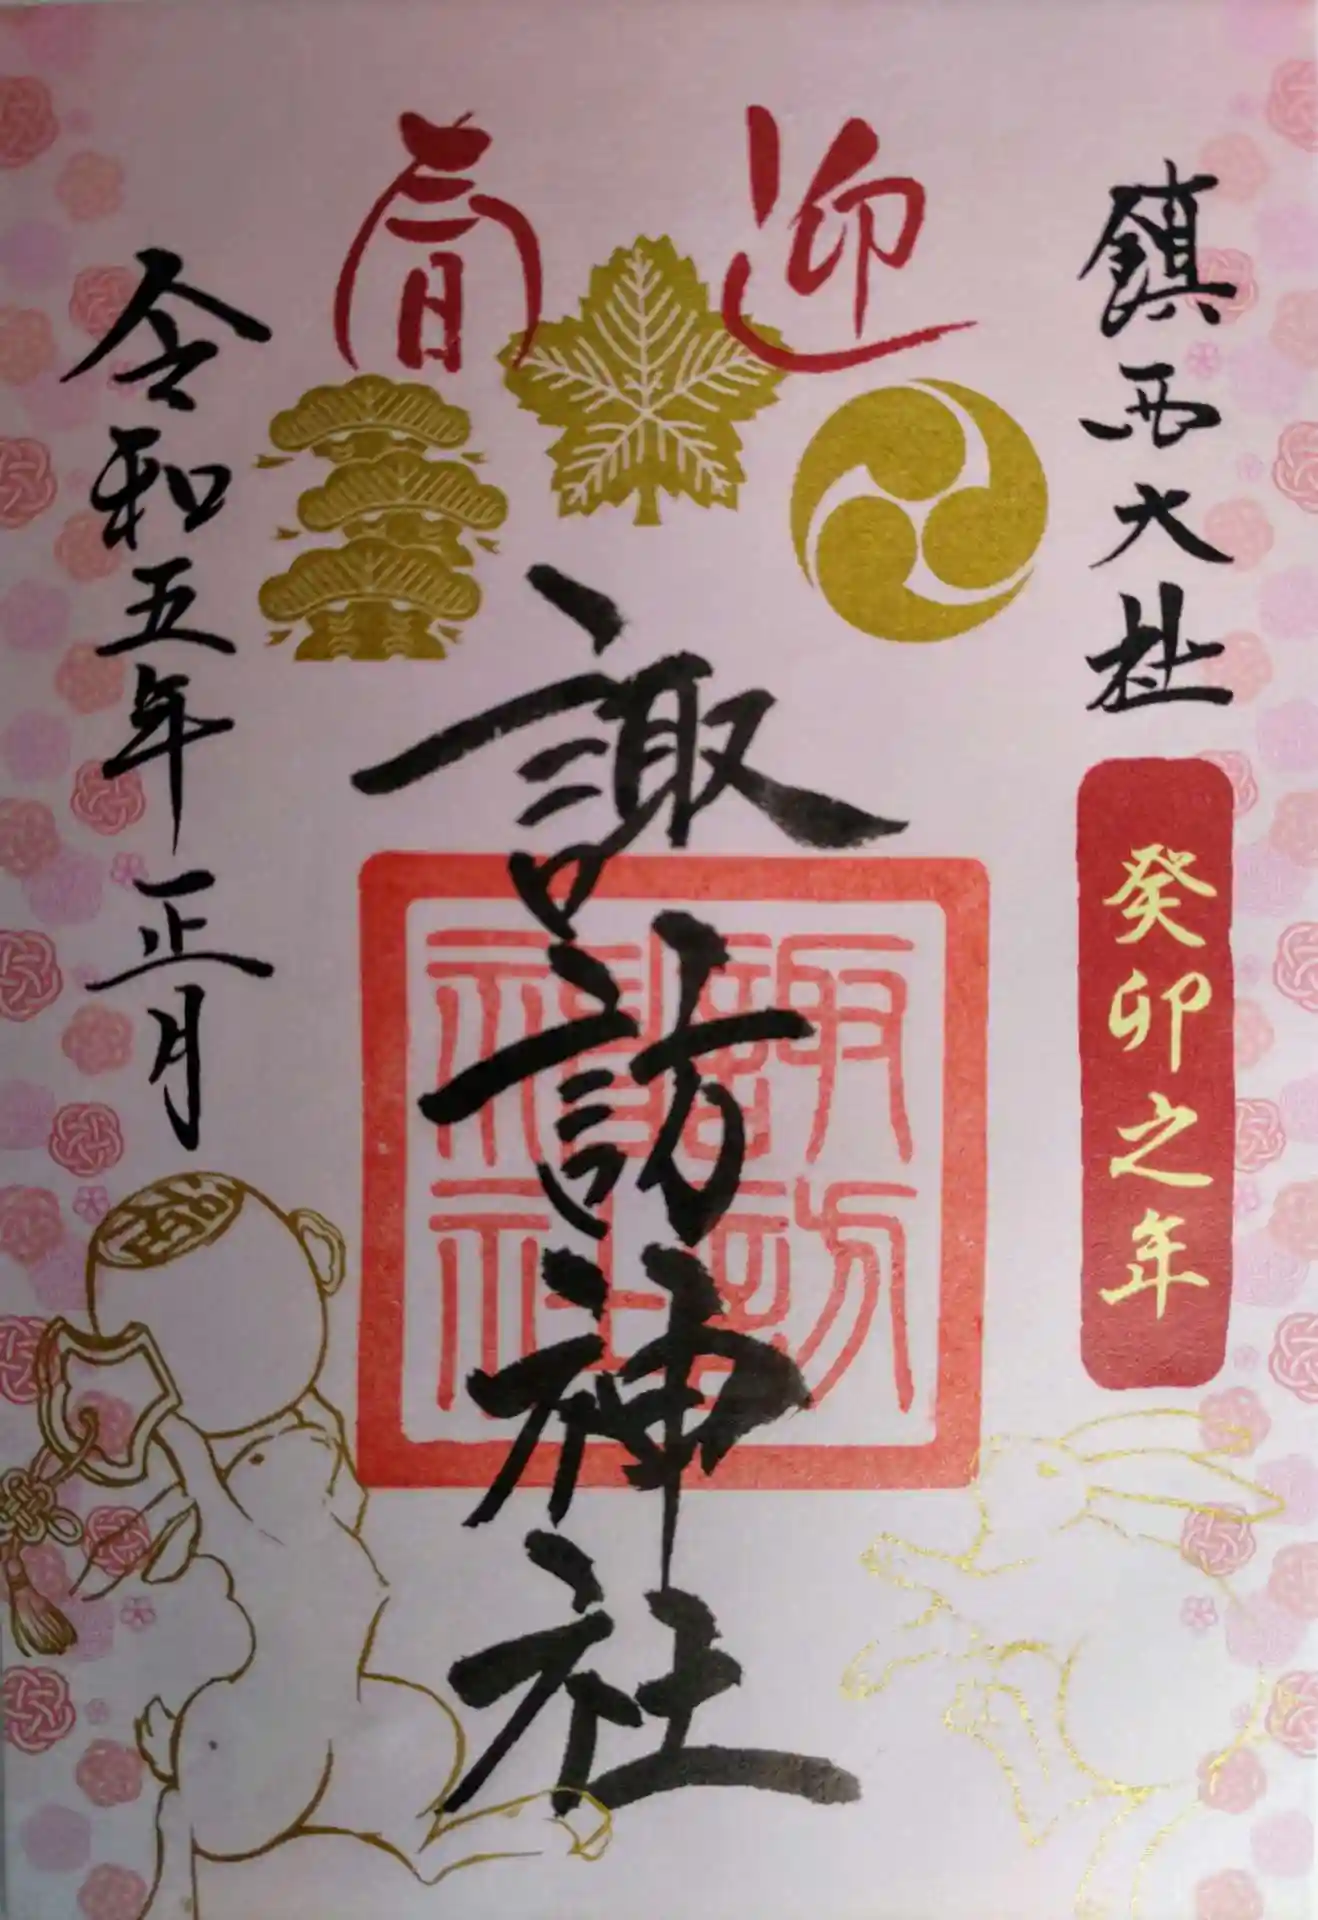 迎春
鎮西大社
癸卯之年
諏訪神社
諏訪神社
令和五年正月